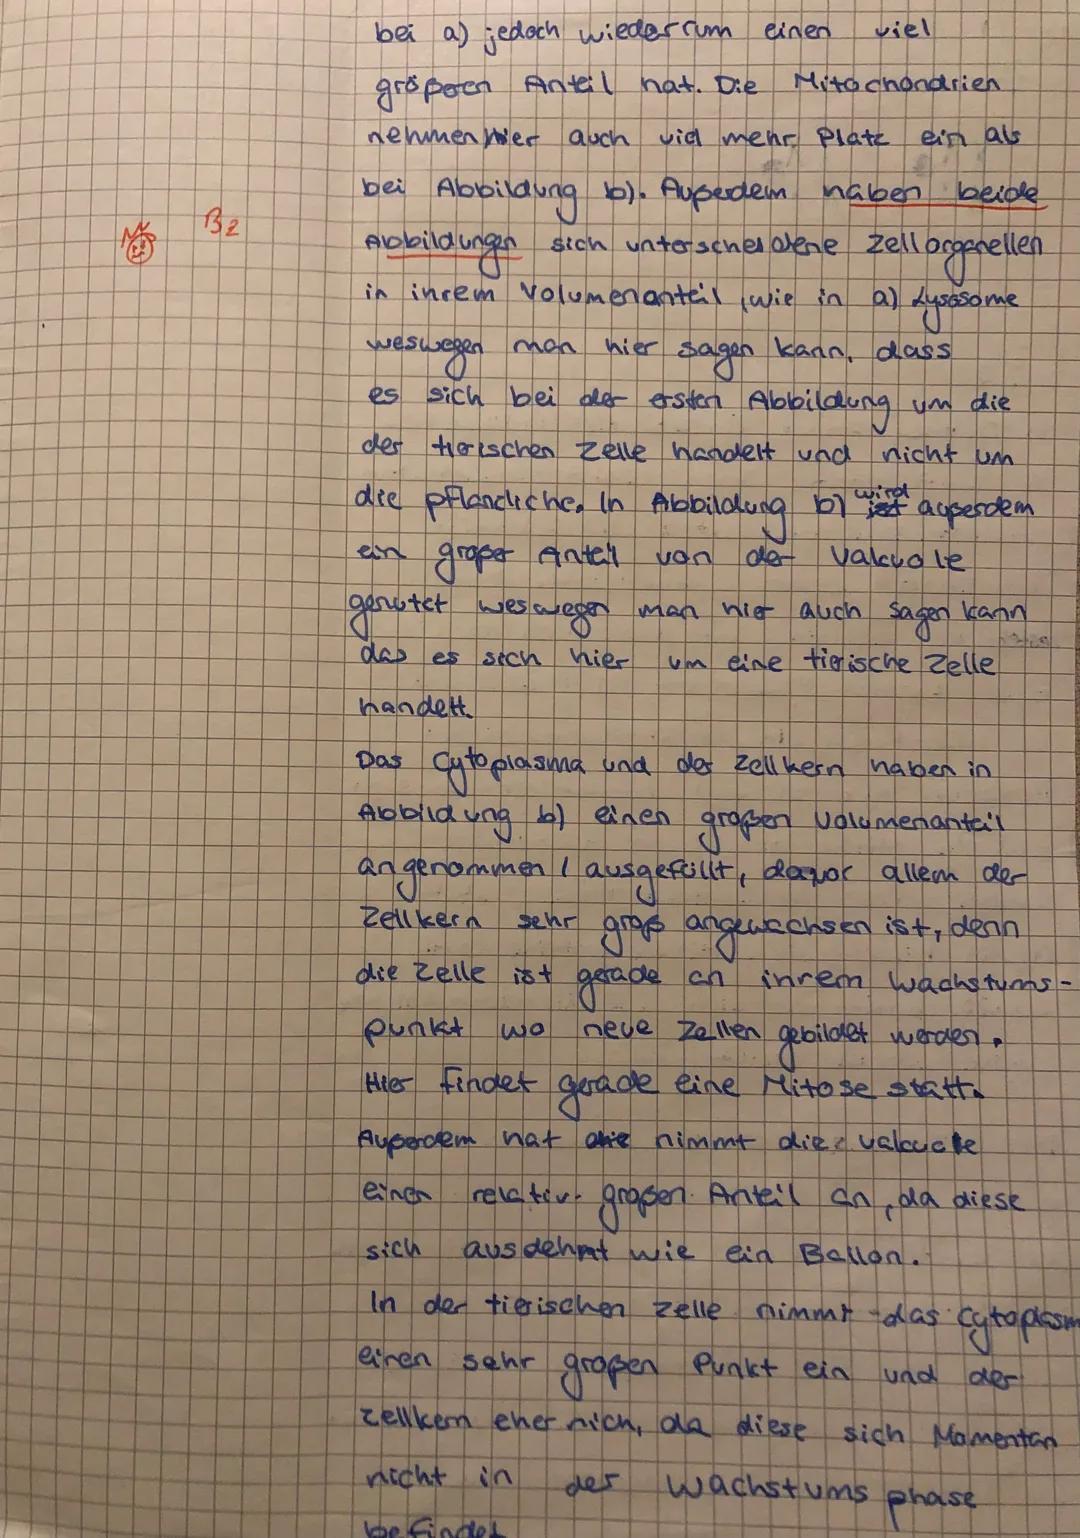 bei a) jedoch wiederrum einen viel
größeren Anteil hat. Die Mitochondrien
nehmen hier auch viel mehr Platz ein als
bei Abbildung b). Außerdem haben beide
B2
Abbildungen sich unterscheidene Zellorganellen
in ihrem Volumenanteil, wie in a) Lysosome
weswegen man hier sagen kann, dass
es sich bei der ersten Abbildung um die
der tierischen Zelle handelt und nicht um
die pflandliche. In Abbildung b) wird außerdem
ein großer Anteil von der Vakuole
genutzt weswegen man hier auch sagen kann
das es sich hier um eine tierische Zelle
handelt.
Das Cytoplasma und der Zellkern haben in
Abbildung b) einen großen Volumenanteil
angenommen / ausgefüllt, da vor allem der
Zellkern sehr groß angewachsen ist, denn
die Zelle ist gerade an ihrem Wachstums-
punkt wo neue Zellen gebildet werden.
Hier findet gerade eine Mitose statt.
Außerdem nimmt die Vakuole
einen relativ großen Anteil an, da diese
sich ausdehnt wie ein Ballon.
In der tierischen Zelle nimmt das Cytoplasm
einen sehr großen Punkt ein und der
Zellkern eher nich, da diese sich Momentan
nicht in der Wachstums phase
befindet